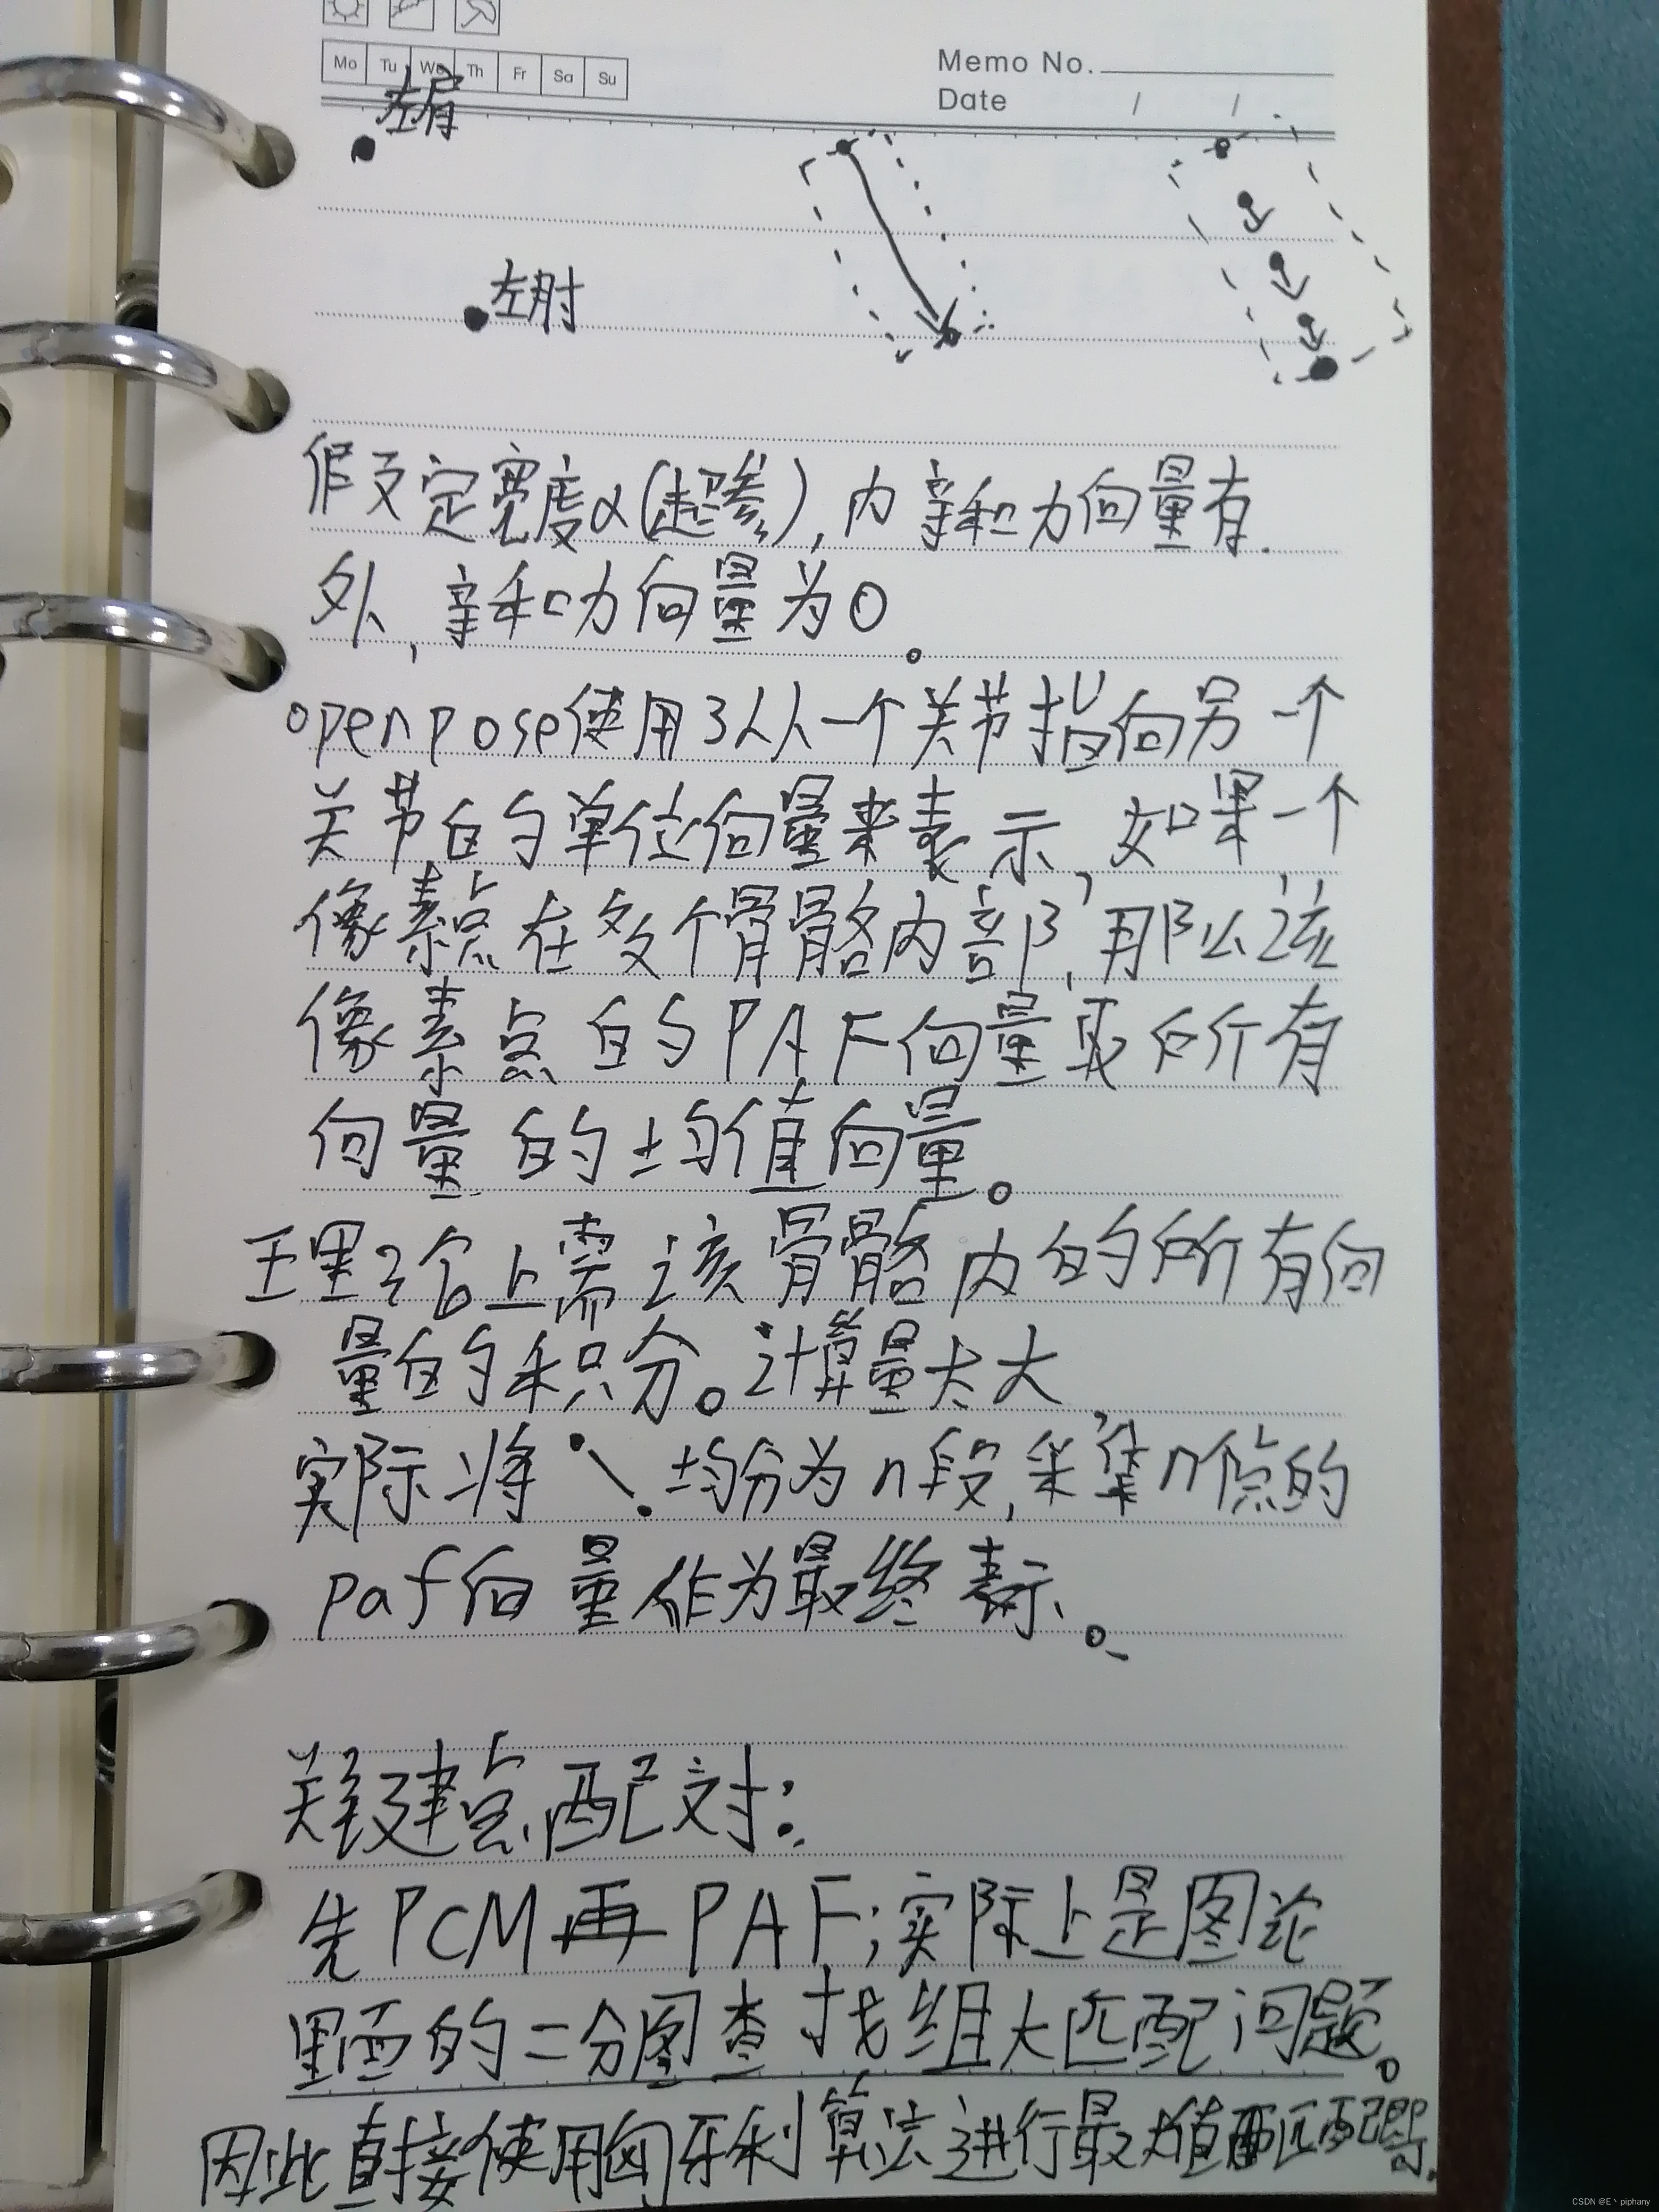 Mo Tu We Th Fr Sa Su
Memo No.
Date / /
左肩
左肘
假设定宽度α(超参),内亲和力向量有.
外,亲和力向量为0。
openpose使用了从一个关节指向另一个
关节的单位向量来表示,如果一个
像素点在多个骨骼内部,那么该
像素点的PAF向量取所有
向量的均值向量。
王里论上需该骨骼内的所有向
量的积分。计算量太大
实际将 均分为n段,采集n个点的
paf向量作为最终表示。
关键点配对:
先PCM再PAF;实际上是图论
里面的二分图查找组大匹配问题。
因此直接使用匈牙利算法进行最大值匹配即可.
CSDN @E丶piphany